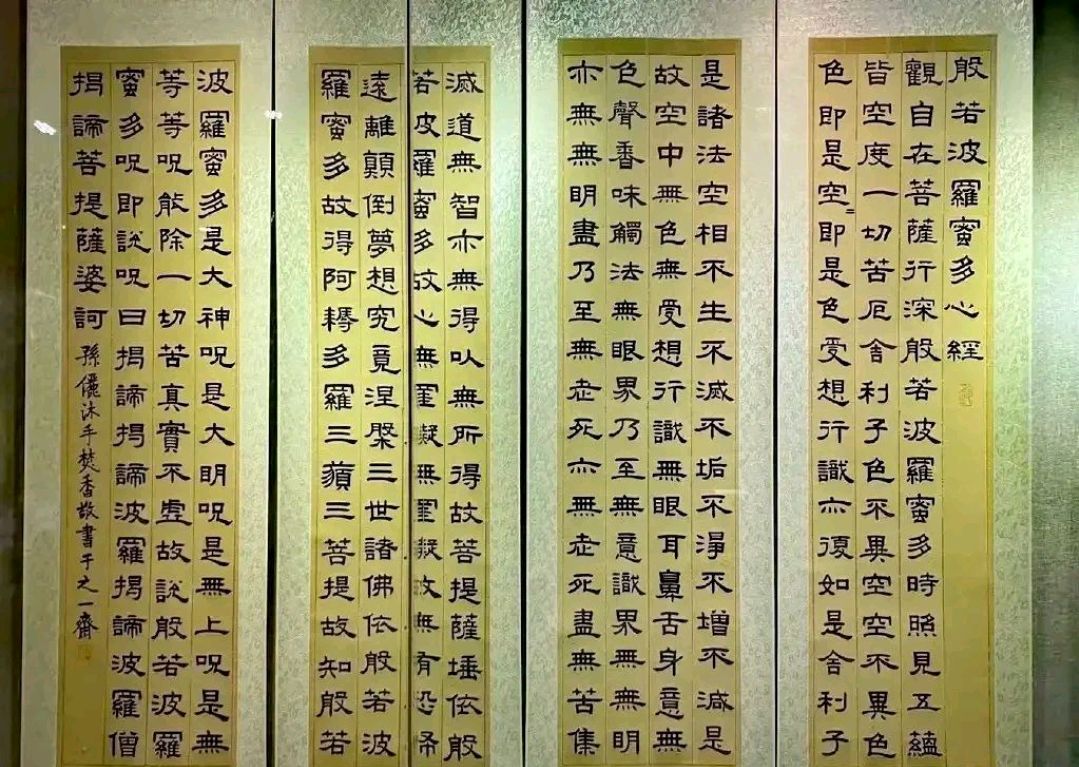 般若波羅蜜多心經
觀自在菩薩行深般若波羅蜜多時照見五蘊
皆空度一切苦厄舍利子色不異空空不異色
色即是空〻即是色受想行識亦復如是舍利子
是諸法空相不生不滅不垢不淨不增不減是
故空中無色無受想行識無眼耳鼻舌身意無
色聲香味觸法無眼界乃至無意識界無無明
亦無無明盡乃至無老死亦無老死盡無苦集
滅道無智亦無得以無所得故菩提薩埵依般
若波羅蜜多故心無罣礙無罣礙故無有恐怖
遠離顛倒夢想究竟涅槃三世諸佛依般若波
羅蜜多故得阿耨多羅三藐三菩提故知般若
波羅蜜多是大神呪是大明呪是無上呪是無
等等呪能除一切苦真實不虛故說般若波羅
蜜多呪即說呪曰揭諦揭諦波羅揭諦波羅僧
揭諦菩提薩婆訶 孫儷沐手焚香敬書于之一齋